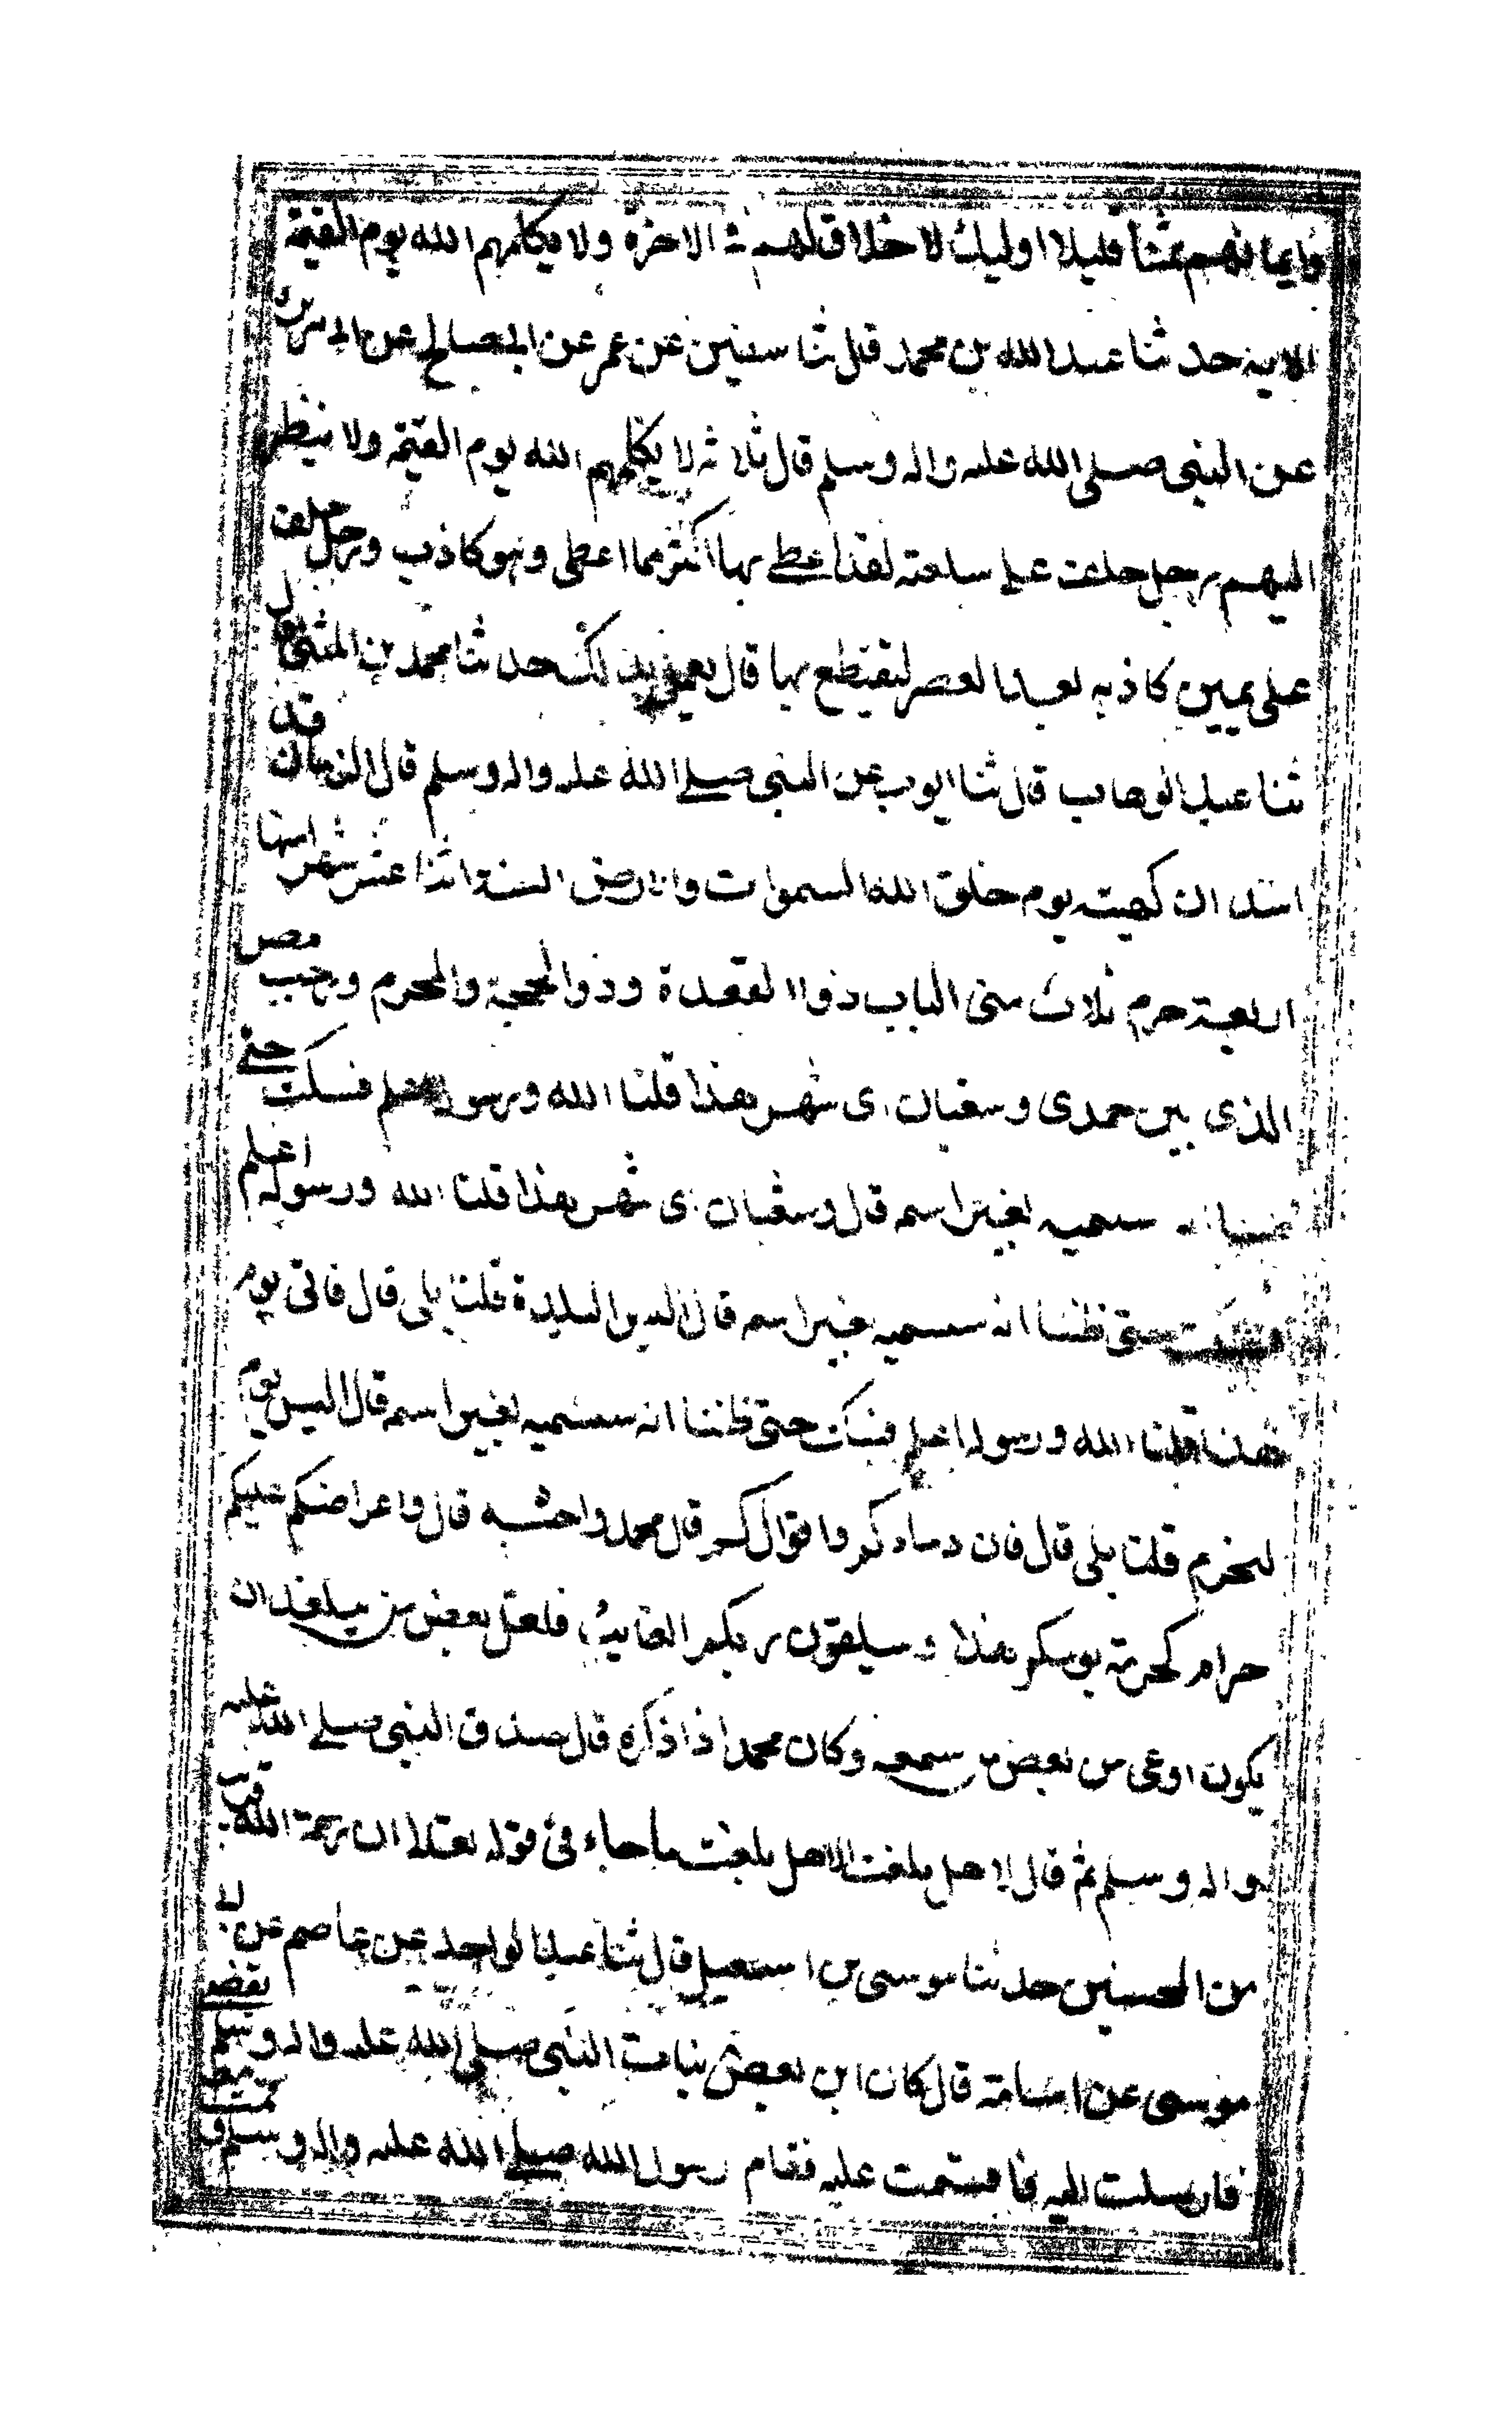 وايمانهم ثمنا قليلا اوليك لا خلاق لهم في الاخرة ولا يكلمهم الله يوم القيمة
الايه حد ثنا عبد الله بن محمد قال ثنا سفين عن عمر عن ابي صالح عن ابي هريرة
عن النبي صلى الله عليه واله وسلم قال ثلاثه لا يكلمهم الله يوم القيمة ولا ينظر
اليهم رجل حلف على سلعته لقد اعطى بها اكثر مما اعطى وهو كاذب ورجل حلف
على يمين كاذبه بعد العصر ليقتطع بها قال حد ثنا محمد بن المثنى قال
ثنا عبد الوهاب قال ثنا ايوب عن النبي صلى الله عليه واله وسلم قال الزمان قد
استدار كهيته يوم خلق الله السموات والارض السنة اثنا عشر شهر اسنها
اربعة حرم ثلاث متى الباب ذوا القعدة وذوالحجة والمحرم ورجب مصر
الذى بين جمدى وسعبان اى شهر هذا قلنا الله ورسوله اعلم فسكت حتى
ظننا انه سيسميه بغير اسمه قال وسعبان اى شهر هذا قلنا الله ورسوله اعلم
فسكت حتى ظننا انه سيسميه بغير اسمه قال اليس البلدة قلنا بلى قال فاتى يوم
هذا قلنا الله ورسوله اعلم فسكت حتى ظننا انه سيسميه بغير اسمه قال اليس يوم
النحرم قلنا بلى قال فان دماء كم واموالكم قال محمد واحسبه قال واعراضكم عليكم
حرام كحرمة يومكم هذا وسيلقون ربكم الغايه فلعل بعض من يبلغه ان
يكون اوعى من بعض من سمعه وكان محمد اذا ذكره قال صدق النبي صلى الله عليه
واله وسلم ثم قال الا هل بلغت الا هل بلغت ما جاء في قوله تعالى ان رحمة الله قريب
من المحسنين حد ثنا موسى بن اسمعيل قال ثنا عبد الواحد عن عاصم عن ابي
موسى عن اسامة قال كان ابن بعض بنات النبي صلى الله عليه واله وسلم يقضى
فارسلت اليه فاقسمت عليه فقام رسول الله صلى الله عليه واله وسلم وقمت معه